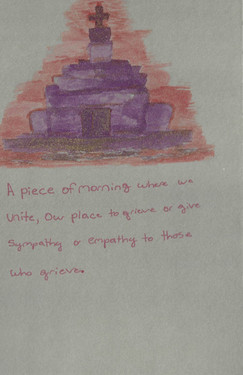 A piece of morning where we
Unite, Our place to grieve or give
Sympathy or empathy to those
who grieve.